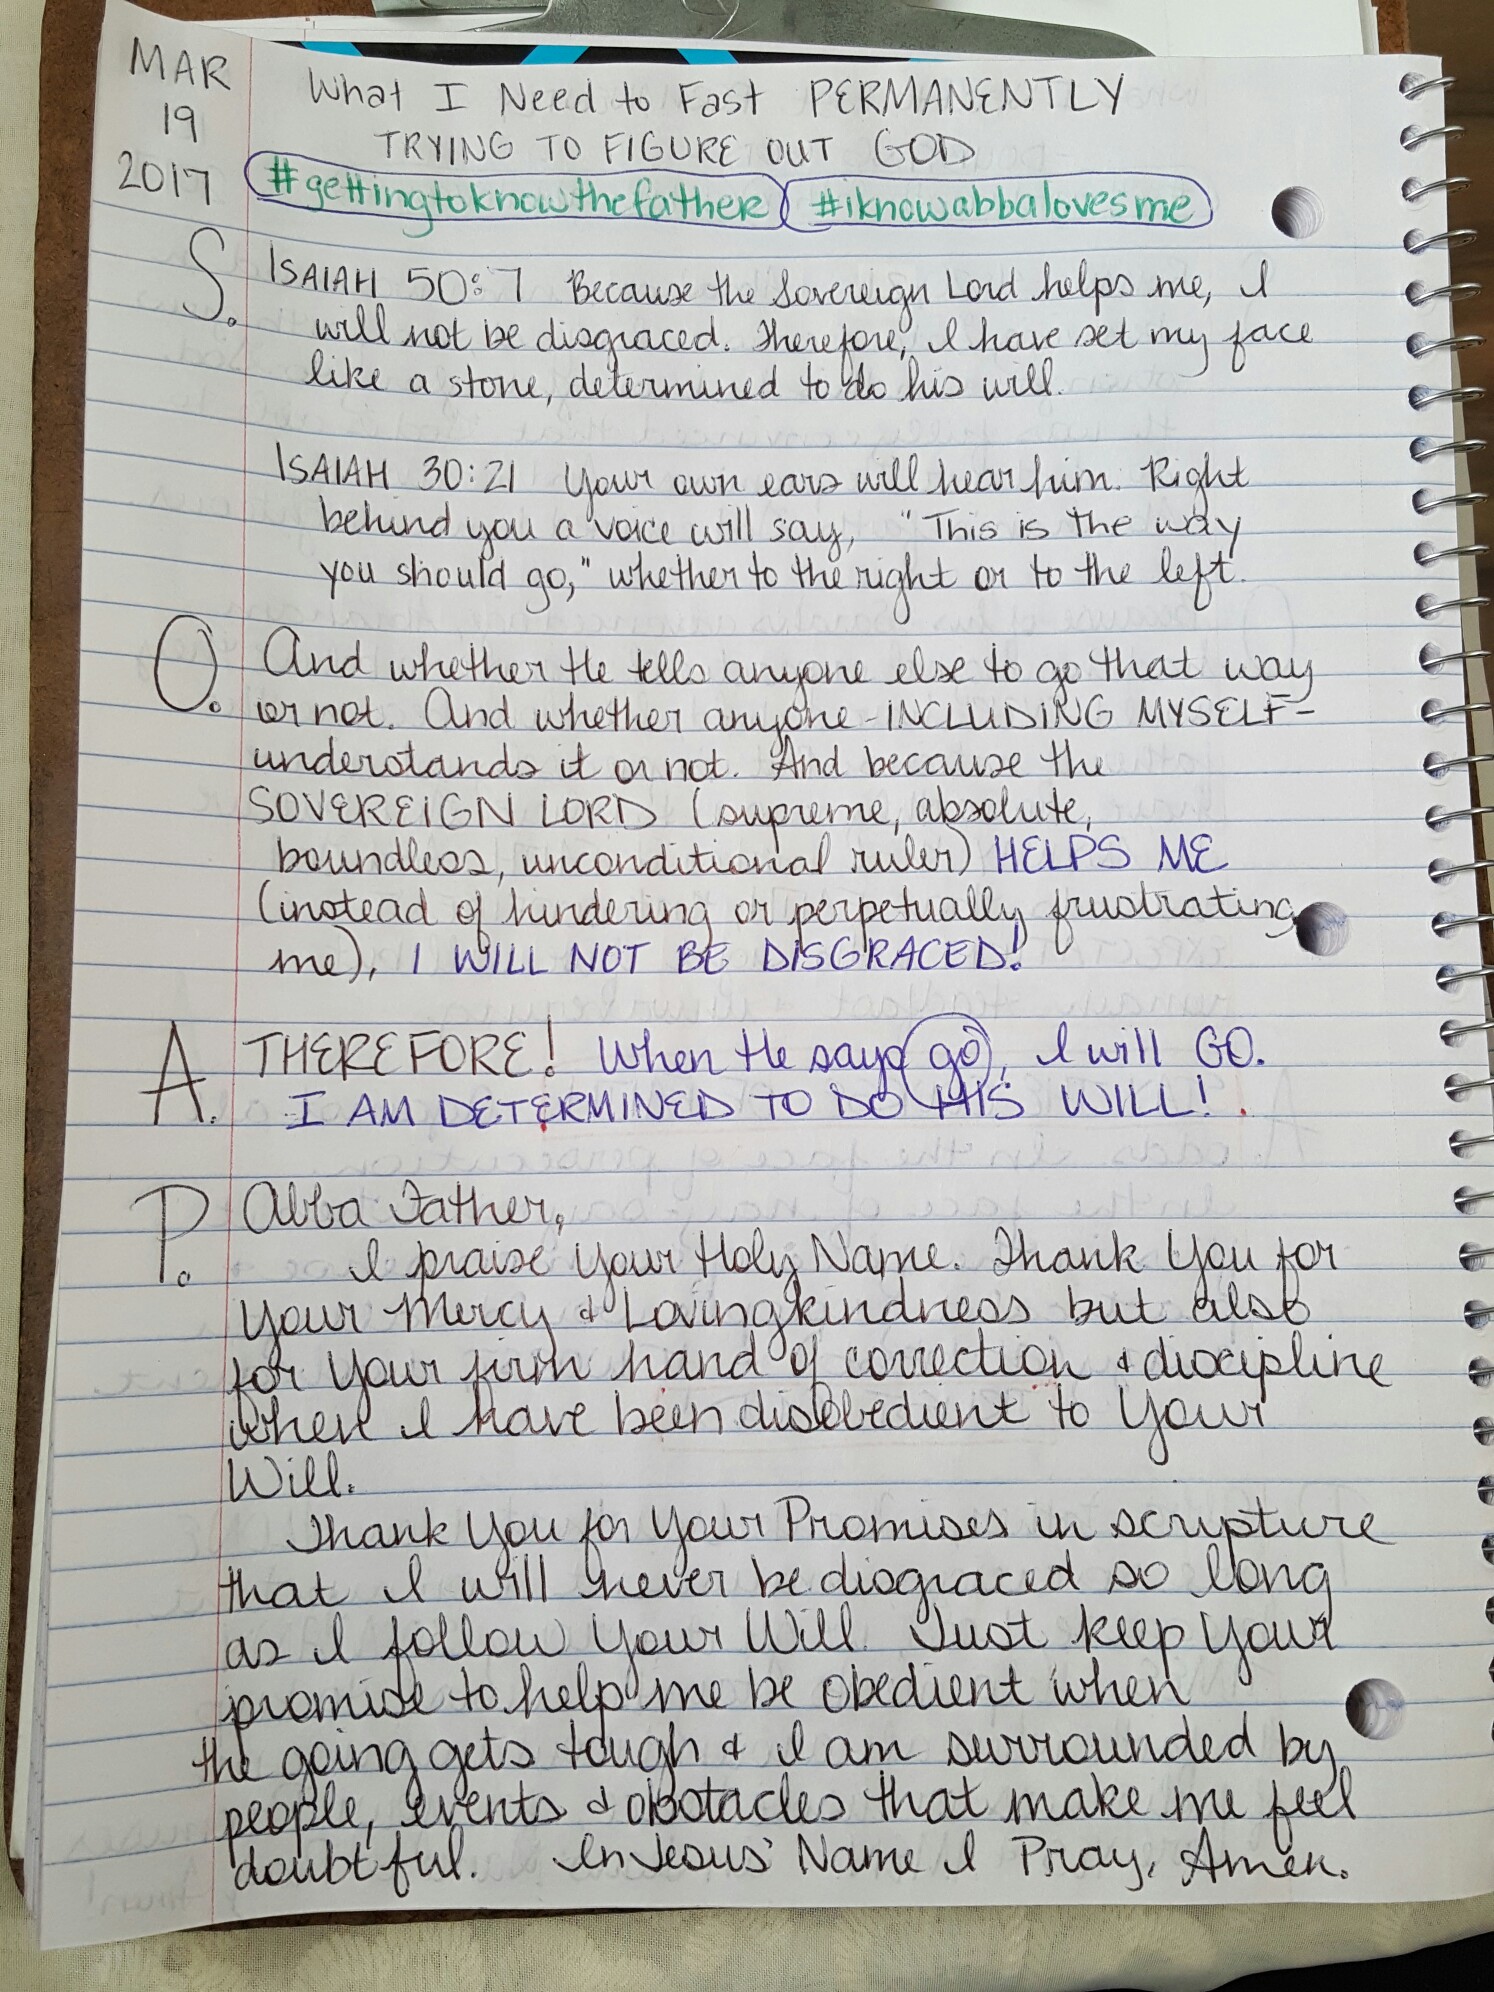 MAR
19
2017
What I Need to Fast PERMANENTLY
TRYING TO FIGURE OUT GOD
#gettingtoknowthefather #iknowabbalovesme
S. ISAIAH 50:7 Because the Sovereign Lord helps me, I
will not be disgraced. Therefore, I have set my face
like a stone, determined to do his will.
ISAIAH 30:21 Your own ears will hear him. Right
behind you a voice will say, "This is the way
you should go," whether to the right or to the left.
O. And whether He tells anyone else to go that way
or not. And whether anyone -INCLUDING MYSELF-
understands it or not. And because the
SOVEREIGN LORD (supreme, absolute,
boundless, unconditional ruler) HELPS ME
(instead of hindering or perpetually frustrating
me), I WILL NOT BE DISGRACED!
A. THEREFORE! When He says go, I will GO.
I AM DETERMINED TO DO HIS WILL!
P. Abba Father,
I praise Your Holy Name. Thank You for
Your Mercy & Lovingkindness but also
for Your firm hand of correction & discipline
when I have been disobedient to Your
Will.
Thank You for Your Promises in scripture
that I will never be disgraced so long
as I follow Your Will. Just keep Your
promise to help me be obedient when
the going gets tough & I am surrounded by
people, events & obstacles that make me feel
doubtful. In Jesus' Name I Pray, Amen.